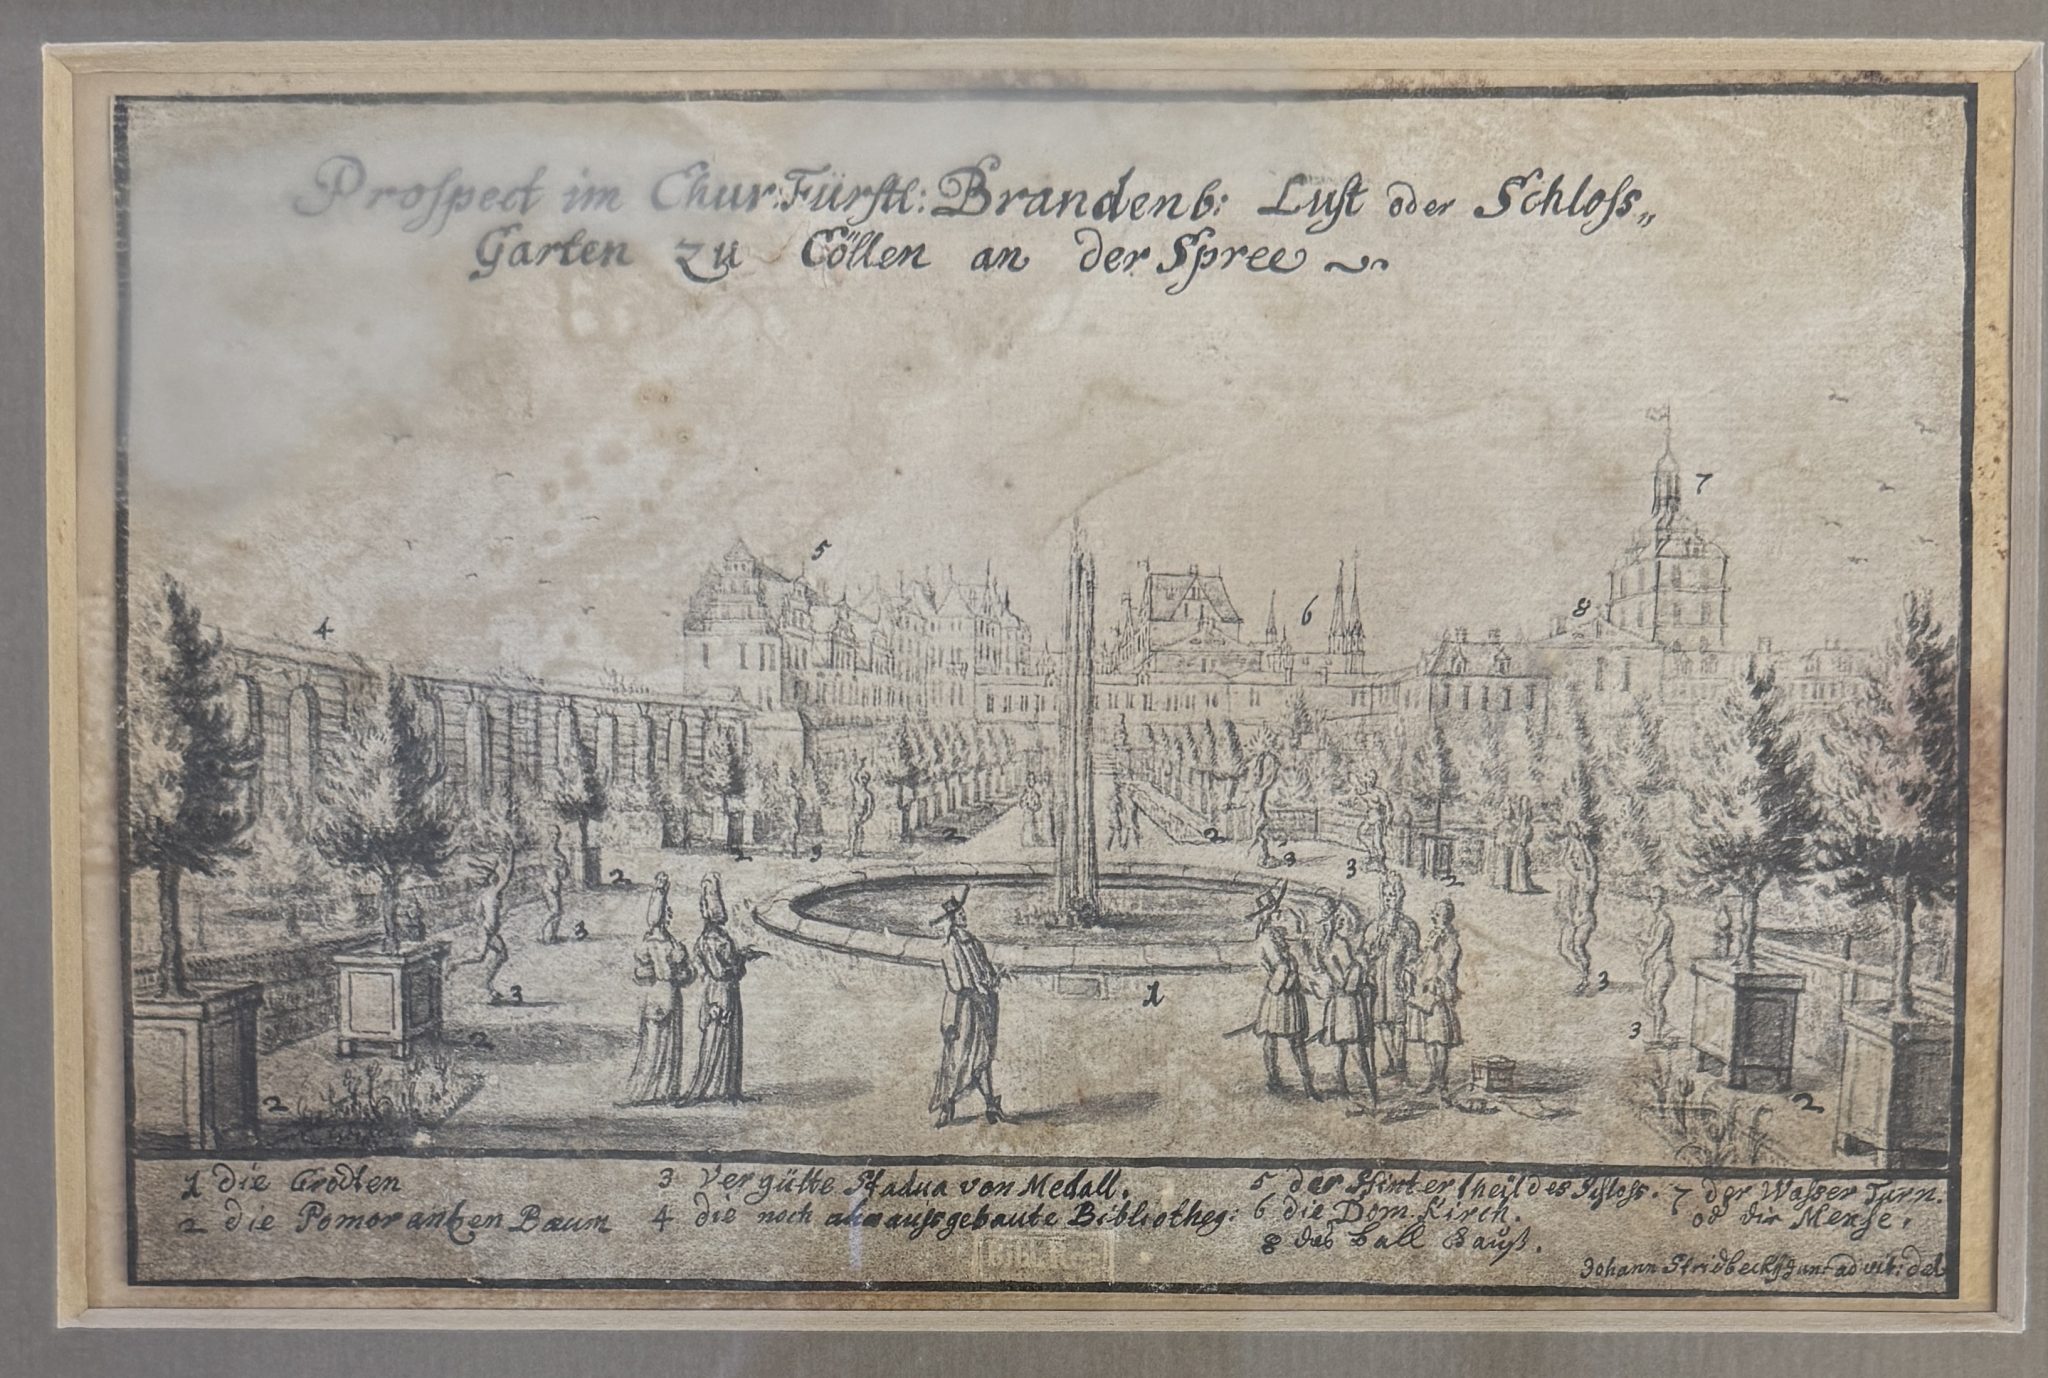 Prospect im Chur:Fürstl: Brandenb: Lust oder Schloss„
Garten zu Cöllen an der Spree
4
5
6
7
8
2
2
3
2
3
3
2
2
3
3
2
1
3
3
2
2
2
1 die Grodten
2 die Pomorantzen Baum
3 Vergülte Stadua von Medall.
4 die noch ausgebaute Bibliotheg:
5 der Hintertheil des Schloss.
6 die Dom. Kirch.
8 das Ball Hauß.
7 der Wasser Turn.
od die Mense.
Johann Stridbeck jun: ad viv: del